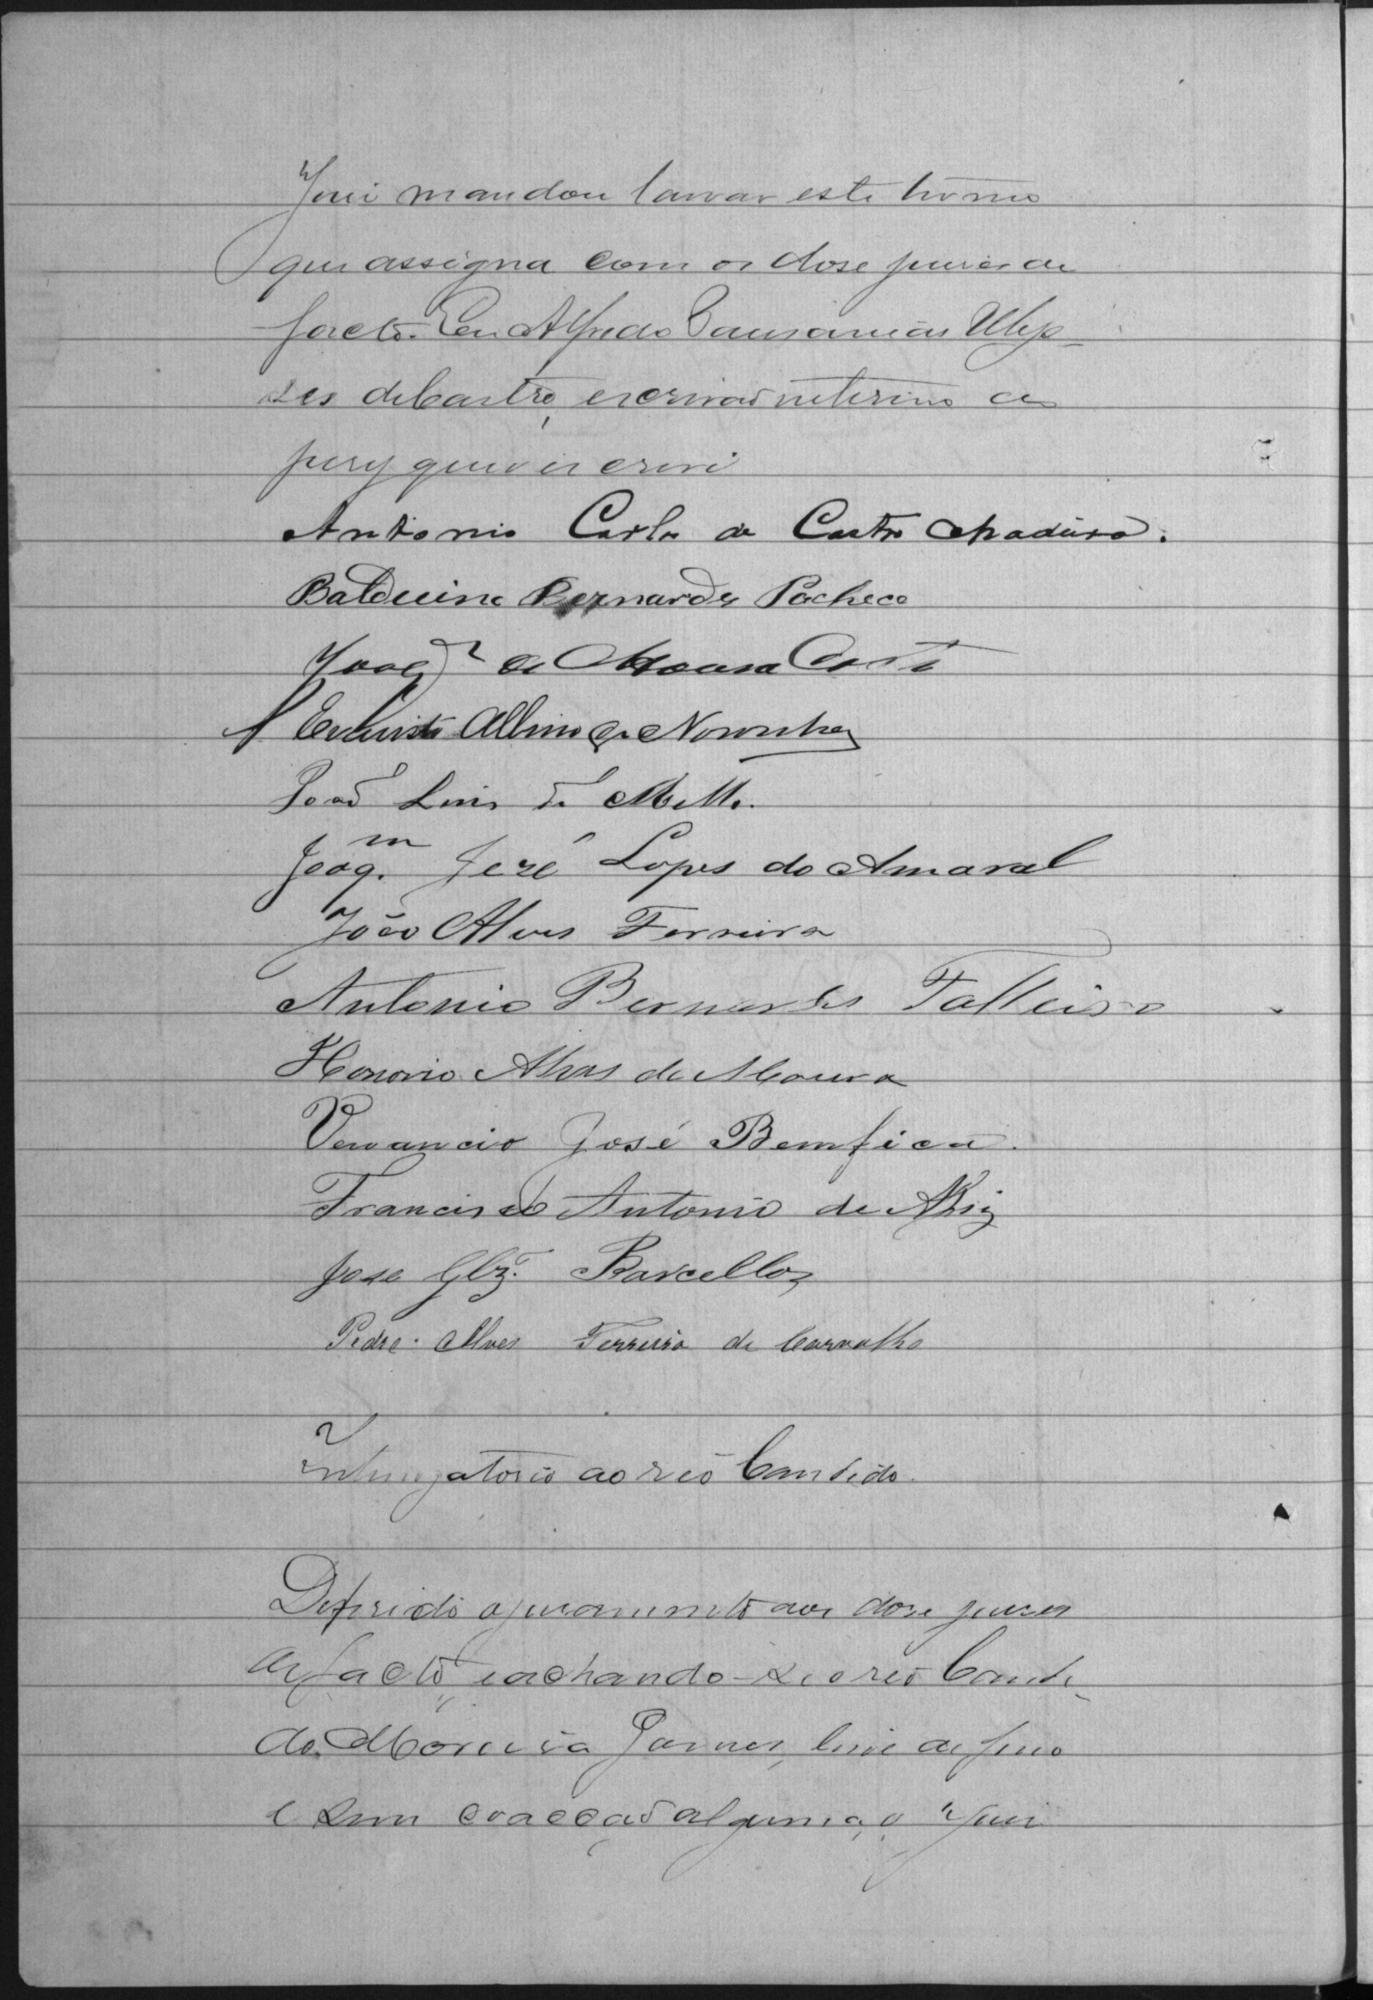 Juiz mandou lavrar este termo
que assigna com os dose juizes de
facto. Eu Alfredo Pausanias Ulys-
ses de Castro, escrivaõ interino do
jury que o escrevi
Antonio Carlos de Castro Madura.
Balduino Bernardes Pacheco
Joaqm de Moura Costa
Evaristo Albino de Noronha
Joaõ Luis de Mello.
Joaqm. José Lopes do Amaral
João Alves Ferreira
Antonio Bernardes Falleiro
Honorio Alves de Moura
Venancio José Bemfica.
Francisco Antonio de
Jose Glz. Barcellos
Pedro Alves Ferreira de Carvalho
Interrogatorio ao reo Candido.
Deferido o juramento aos dose juizes
de facto, e achando-se o reo Candi-
do Moreira livre de ferro
e sem coacçaõ alguma, o Juiz